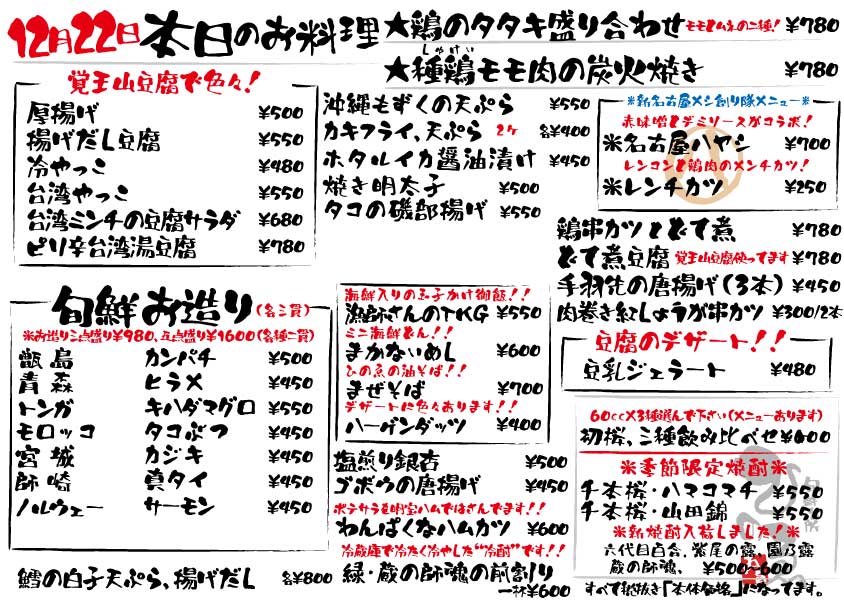 12月22日 本日のお料理
★鶏のタタキ盛り合わせ モモとムネの二種! ¥780
しゅけい
★種鶏モモ肉の炭火焼き ¥780
覚王山豆腐で色々!
厚揚げ ¥500
揚げだし豆腐 ¥550
冷やっこ ¥480
台湾やっこ ¥550
台湾ミンチの豆腐サラダ ¥680
ピリ辛台湾湯豆腐 ¥780
旬鮮お造り(各二貫)
※お造り三点盛り¥980、五点盛り¥1600(各種二貫)
甑島 カンパチ ¥500
青森 ヒラメ ¥450
トンガ キハダマグロ ¥550
モロッコ タコぶつ ¥450
宮城 カジキ ¥450
師崎 真タイ ¥450
ノルウェー サーモン ¥450
鱈の白子天ぷら、揚げだし 各¥800
沖縄もずくの天ぷら ¥550
カキフライ、天ぷら 2ケ 各¥400
ホタルイカ醤油漬け ¥450
焼き明太子 ¥500
タコの磯部揚げ ¥550
海鮮入りの玉子かけ御飯!!
漁師さんのTKG ¥550
ミニ海鮮どん!!
まかないめし ¥600
ひの魚の油そば!!
まぜそば ¥700
デザートに色々あります!!
ハーゲンダッツ ¥400
塩煎り銀杏 ¥500
ゴボウの唐揚げ ¥450
ポテサラを明宝ハムではさんでます!!
わんぱくなハムカツ ¥600
冷蔵庫で冷たく冷やした"冷酎"です!!
緑・蔵の師魂の前割り
一杯¥600
※新名古屋メシ創り隊メニュー※
赤味噌とデミソースがコラボ!
※名古屋ハヤシ ¥700
レンコンと鶏肉のメンチカツ!
※レンチカツ ¥250
鶏串カツとどて煮 ¥780
どて煮豆腐 覚王山豆腐使ってます ¥780
手羽先の唐揚げ(3本) ¥450
肉巻き紅しょうが串カツ ¥300/2本
豆腐のデザート!!
豆乳ジェラート ¥480
60cc×3種選んで下さい(メニューあります)
初桜、三種飲み比べせ¥800
※季節限定焼酎※
千本桜・ハマコマチ ¥550
千本桜・山田錦 ¥550
※新焼酎入荷しました!※
六代目百合、鷲尾の露、園乃露
蔵の師魂、 ¥500～600
すべて税抜き「本体価格」になってます。